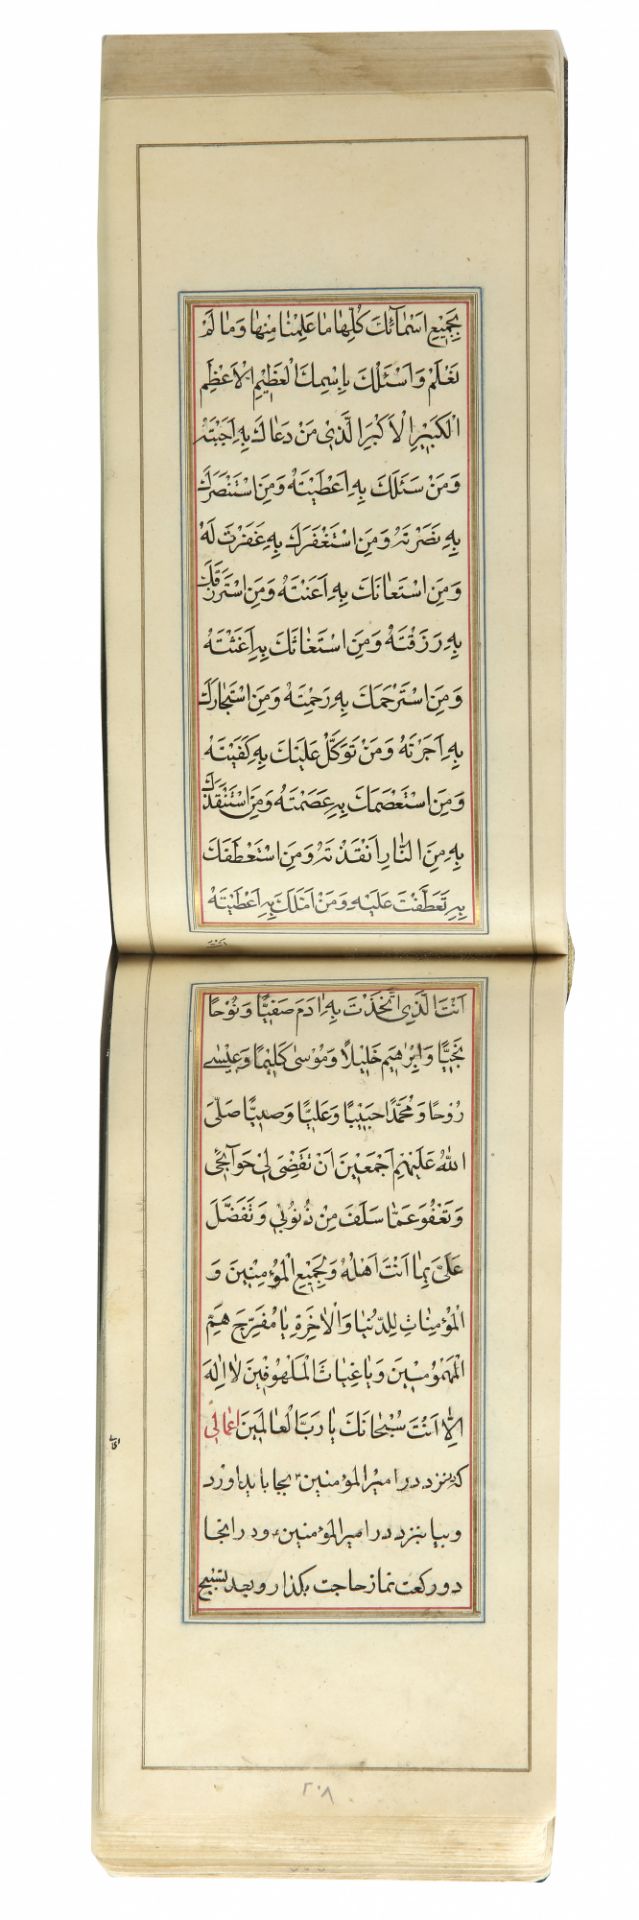 بِجَمِيعِ اَسْمَآئِكَ كُلِّهَا مَا عَلِمْنَا مِنْهَا وَمَا لَمْ
نَعْلَمْ وَاَسْئَلُكَ بِاِسْمِكَ الْعَظِيمِ الْاَعْظَمِ
الْكَبِيْرِ الْاَكْبَرِ الَّذِي مَنْ دَعَاكَ بِهِ اَجَبْتَهُ
وَمَنْ سَئَلَكَ بِهِ اَعْطَيْتَهُ وَمَنِ اسْتَنْصَرَكَ
بِهِ نَصَرْتَهُ وَمَنِ اسْتَغْفَرَكَ بِهِ غَفَرْتَ لَهُ
وَمَنِ اسْتَعَانَكَ بِهِ اَعَنْتَهُ وَمَنِ اسْتَرْزَقَكَ
بِهِ رَزَقْتَهُ وَمَنِ اسْتَغَاثَكَ بِهِ اَغَثْتَهُ
وَمَنِ اسْتَرْحَمَكَ بِهِ رَحِمْتَهُ وَمَنِ اسْتَجَارَكَ
بِهِ اَجَرْتَهُ وَمَنْ تَوَكَّلَ عَلَيْكَ بِهِ كَفَيْتَهُ
وَمَنِ اسْتَعْصَمَكَ بِهِ عَصَمْتَهُ وَمَنِ اسْتَنْقَذَكَ
بِهِ مِنَ النَّارِ اَنْقَذْتَهُ وَمَنِ اسْتَعْطَفَكَ
بِهِ تَعَطَّفْتَ عَلَيْهِ وَمَنْ اَمَلَكَ بِهِ اَعْطَيْتَهُ
انت
اَنْتَ الَّذِي اتَّخَذْتَ بِهِ اٰدَمَ صَفِيًّا وَنُوْحًا
نَجِيًّا وَاِبْرٰهِيمَ خَلِيْلًا وَمُوْسٰى كَلِيْمًا وَعِيْسٰى
رُوْحًا وَمُحَمَّدًا حَبِيْبًا وَعَلِيًّا وَصِيًّا صَلَّى
اللهُ عَلَيْهِمْ اَجْمَعِيْنَ اَنْ تَقْضِيَ لِي حَوَآئِجِي
وَتَعْفُوَ عَمَّا سَلَفَ مِنْ ذُنُوْبِي وَتَفَضَّلَ
عَلَيَّ بِمَا اَنْتَ اَهْلُهُ وَلِجَمِيْعِ الْمُؤْمِنِيْنَ وَ
الْمُؤْمِنَاتِ لِلدُّنْيَا وَالْاٰخِرَةِ يَا مُفَرِّجَ هَمِّ
الْمَهْمُوْمِيْنَ وَيَا غِيَاثَ الْمَلْهُوْفِيْنَ لَا اِلٰهَ
اِلَّا اَنْتَ سُبْحَانَكَ يَا رَبَّ الْعَالَمِيْنَ اعمالی
که نزد در امیر المؤمنین بجا باید اورد
وبیا بنزد در امیر المؤمنین و در انجا
دو رکعت نماز حاجت بکذار و بعد تسبیح
٢٠٨